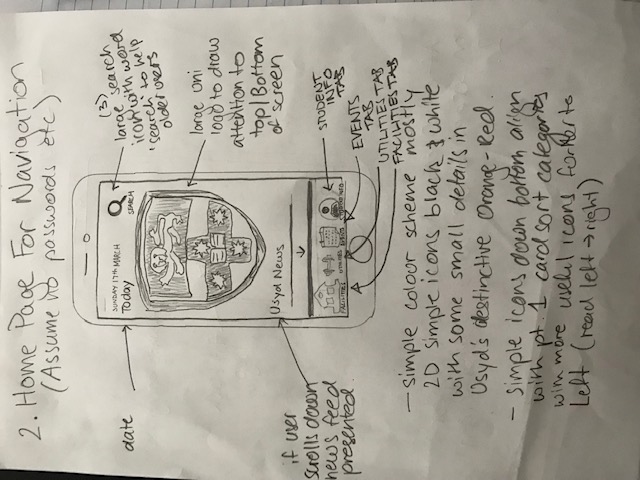 2. Home Page For Navigation
(Assume no passwords etc)
date
SUNDAY 17TH MARCH
Today
SEARCH
(3)
large search
icon with word
'search' to help
older users
large uni
logo to draw
attention to
top/Bottom
of screen
Usyd News
if user
scrolls down
news feed
presented.
FACILITIES
UTILITIES
EVENTS
STUDENT INFO
STUDENT
INFO
TAB
EVENTS
TAB
UTILITIES TAB
FACILITIES TAB
- simple colour scheme mostly
2D simple icons black & white
with some small details in
Usyd's destinctive Orange-Red.
- simple icons down bottom align
with pt. 1 card sort categories
with more useful icons further to
Left (read left → right)